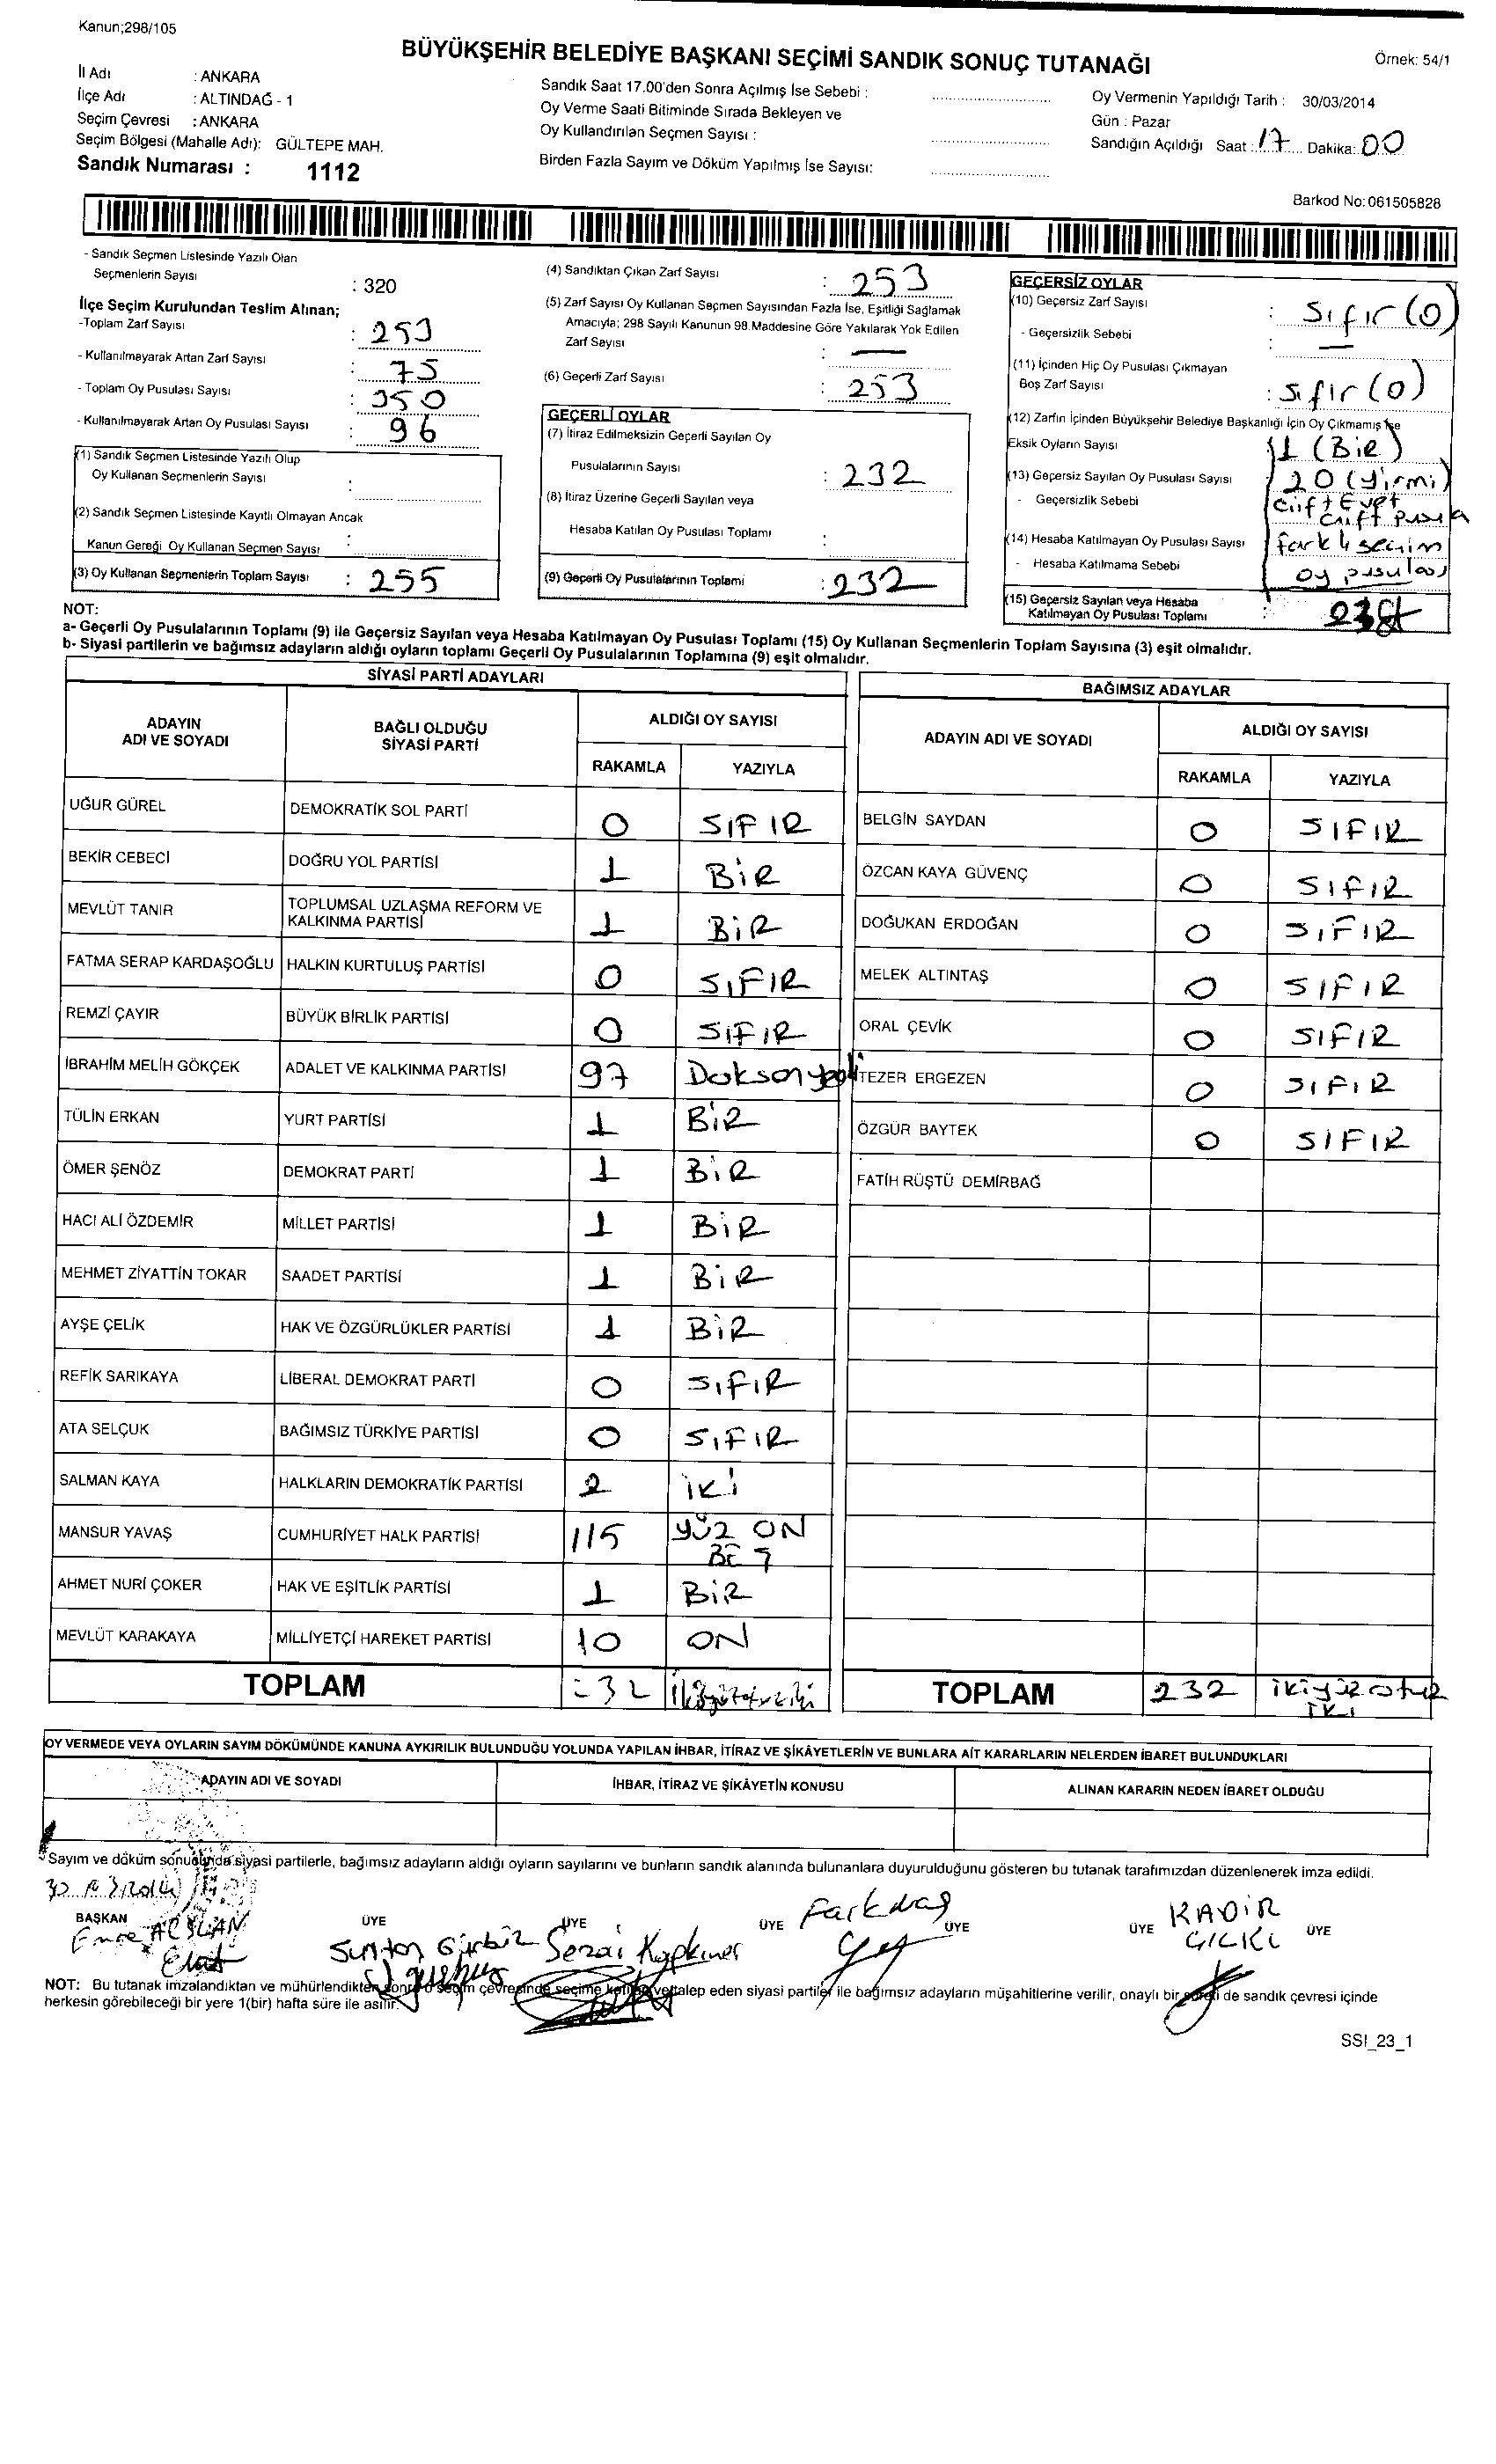 Kanun;298/105
BÜYÜKŞEHİR BELEDİYE BAŞKANI SEÇİMİ SANDIK SONUÇ TUTANAĞI
Örnek: 54/1
İl Adı : ANKARA
İlçe Adı : ALTINDAĞ - 1
Seçim Çevresi : ANKARA
Seçim Bölgesi (Mahalle Adı): GÜLTEPE MAH.
Sandık Numarası : 1112
Sandık Saat 17.00'den Sonra Açılmış İse Sebebi :
Oy Verme Saati Bitiminde Sırada Bekleyen ve
Oy Kullandırılan Seçmen Sayısı :
Birden Fazla Sayım ve Döküm Yapılmış İse Sayısı:
Oy Vermenin Yapıldığı Tarih : 30/03/2014
Gün : Pazar
Sandığın Açıldığı Saat : 17 Dakika: 00
Barkod No:061505828
- Sandık Seçmen Listesinde Yazılı Olan
Seçmenlerin Sayısı : 320
İlçe Seçim Kurulundan Teslim Alınan;
-Toplam Zarf Sayısı : 253
- Kullanılmayarak Artan Zarf Sayısı : 75
- Toplam Oy Pusulası Sayısı : 350
- Kullanılmayarak Artan Oy Pusulası Sayısı : 96
(1) Sandık Seçmen Listesinde Yazılı Olup
Oy Kullanan Seçmenlerin Sayısı :
(2) Sandık Seçmen Listesinde Kayıtlı Olmayan Ancak
Kanun Gereği Oy Kullanan Seçmen Sayısı :
(3) Oy Kullanan Seçmenlerin Toplam Sayısı : 255
(4) Sandıktan Çıkan Zarf Sayısı : 253
(5) Zarf Sayısı Oy Kullanan Seçmen Sayısından Fazla İse, Eşitliği Sağlamak
Amacıyla; 298 Sayılı Kanunun 98.Maddesine Göre Yakılarak Yok Edilen
Zarf Sayısı : —
(6) Geçerli Zarf Sayısı : 253
GEÇERLİ OYLAR
(7) İtiraz Edilmeksizin Geçerli Sayılan Oy
Pusulalarının Sayısı : 232
(8) İtiraz Üzerine Geçerli Sayılan veya
Hesaba Katılan Oy Pusulası Toplamı :
(9) Geçerli Oy Pusulalarının Toplamı : 232
GEÇERSİZ OYLAR
(10) Geçersiz Zarf Sayısı : Sıfır (0)
- Geçersizlik Sebebi : —
(11) İçinden Hiç Oy Pusulası Çıkmayan
Boş Zarf Sayısı : Sıfır (0)
(12) Zarfın İçinden Büyükşehir Belediye Başkanlığı İçin Oy Çıkmamış İse
Eksik Oyların Sayısı 1 (Bir)
(13) Geçersiz Sayılan Oy Pusulası Sayısı 20 (yirmi)
- Geçersizlik Sebebi Çift Evet
Çift pusula
(14) Hesaba Katılmayan Oy Pusulası Sayısı farklı seçim
- Hesaba Katılmama Sebebi oy pusulası
(15) Geçersiz Sayılan veya Hesaba
Katılmayan Oy Pusulası Toplamı :
NOT:
a- Geçerli Oy Pusulalarının Toplamı (9) ile Geçersiz Sayılan veya Hesaba Katılmayan Oy Pusulası Toplamı (15) Oy Kullanan Seçmenlerin Toplam Sayısına (3) eşit olmalıdır.
b- Siyasi partilerin ve bağımsız adayların aldığı oyların toplamı Geçerli Oy Pusulalarının Toplamına (9) eşit olmalıdır.
SİYASİ PARTİ ADAYLARI
ADAYIN ADI VE SOYADI
BAĞLI OLDUĞU SİYASİ PARTİ
ALDIĞI OY SAYISI
RAKAMLA YAZIYLA
UĞUR GÜREL DEMOKRATİK SOL PARTİ 0 SIFIR
BEKİR CEBECİ DOĞRU YOL PARTİSİ 1 BİR
MEVLÜT TANIR TOPLUMSAL UZLAŞMA REFORM VE KALKINMA PARTİSİ 1 BİR
FATMA SERAP KARDAŞOĞLU HALKIN KURTULUŞ PARTİSİ 0 SIFIR
REMZİ ÇAYIR BÜYÜK BİRLİK PARTİSİ 0 SIFIR
İBRAHİM MELİH GÖKÇEK ADALET VE KALKINMA PARTİSİ 97 Doksanyedi
TÜLİN ERKAN YURT PARTİSİ 1 BİR
ÖMER ŞENÖZ DEMOKRAT PARTİ 1 BİR
HACI ALİ ÖZDEMİR MİLLET PARTİSİ 1 BİR
MEHMET ZİYATTİN TOKAR SAADET PARTİSİ 1 BİR
AYŞE ÇELİK HAK VE ÖZGÜRLÜKLER PARTİSİ 1 BİR
REFİK SARIKAYA LİBERAL DEMOKRAT PARTİ 0 SIFIR
ATA SELÇUK BAĞIMSIZ TÜRKİYE PARTİSİ 0 SIFIR
SALMAN KAYA HALKLARIN DEMOKRATİK PARTİSİ 2 İKİ
MANSUR YAVAŞ CUMHURİYET HALK PARTİSİ 115 YÜZ ON BEŞ
AHMET NURİ ÇOKER HAK VE EŞİTLİK PARTİSİ 1 BİR
MEVLÜT KARAKAYA MİLLİYETÇİ HAREKET PARTİSİ 10 ON
TOPLAM 232 ikiyüzotuziki
BAĞIMSIZ ADAYLAR
ADAYIN ADI VE SOYADI
ALDIĞI OY SAYISI
RAKAMLA YAZIYLA
BELGİN SAYDAN 0 SIFIR
ÖZCAN KAYA GÜVENÇ 0 SIFIR
DOĞUKAN ERDOĞAN 0 SIFIR
MELEK ALTINTAŞ 0 SIFIR
ORAL ÇEVİK 0 SIFIR
TEZER ERGEZEN 0 SIFIR
ÖZGÜR BAYTEK 0 SIFIR
FATİH RÜŞTÜ DEMİRBAĞ
TOPLAM 232 ikiyüz otuz iki
OY VERMEDE VEYA OYLARIN SAYIM DÖKÜMÜNDE KANUNA AYKIRILIK BULUNDUĞU YOLUNDA YAPILAN İHBAR, İTİRAZ VE ŞİKÂYETLERİN VE BUNLARA AİT KARARLARIN NELERDEN İBARET BULUNDUKLARI
ADAYIN ADI VE SOYADI İHBAR, İTİRAZ VE ŞİKÂYETİN KONUSU ALINAN KARARIN NEDEN İBARET OLDUĞU
Sayım ve döküm sonucunda siyasi partilerle, bağımsız adayların aldığı oyların sayılarını ve bunların sandık alanında bulunanlara duyurulduğunu gösteren bu tutanak tarafımızdan düzenlenerek imza edildi.
BAŞKAN ÜYE ÜYE ÜYE ÜYE ÜYE ÜYE
Emre ARSLAN Sezai KADİR
NOT: Bu tutanak imzalandıktan ve mühürlendikten sonra o seçim çevresinde seçime katılan ve talep eden siyasi partiler ile bağımsız adayların müşahitlerine verilir, onaylı bir sureti de sandık çevresi içinde
herkesin görebileceği bir yere 1(bir) hafta süre ile asılır.
SSI_23_1